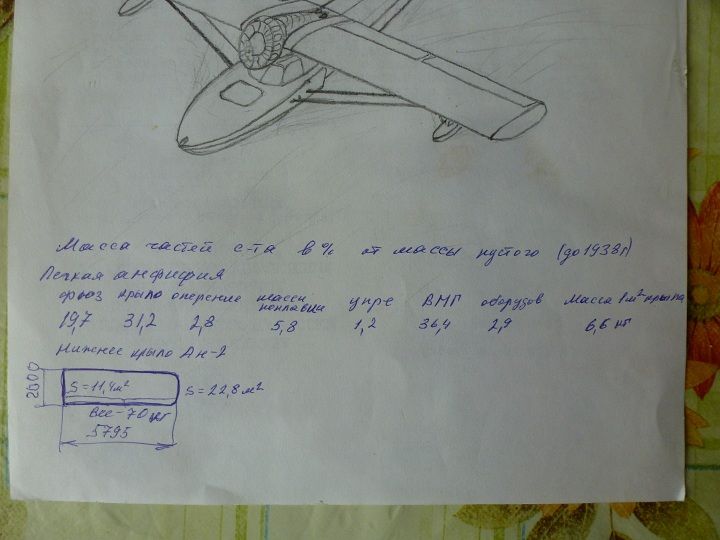 Масса частей с-та в % от массы пустого (до 1938г)
Легкая амфибия
фюз крыло оперение шасси поплавки упре ВМГ оборудов Масса 1м² крыла
19,7 31,2 2,8 5,8 1,2 36,4 2,9 6,6 кг
Нижнее крыло Ан-2
2000 S=11,4м² S=22,8м²
Вес-70кг
5795